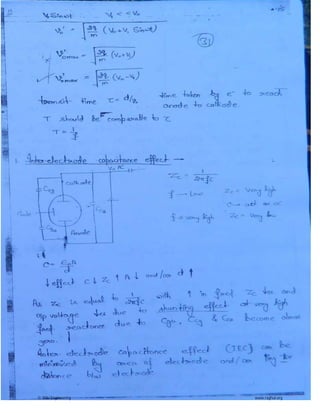 V₁ sinωt V₁ << V₀
V₀' = √(2q/m (V₀ + V₁ sinωt))
31
V'₀max = √(2q/m (V₀+V₁))
V'₀max = √(2q/m (V₀-V₁))
transit time τ = d/v₀ time taken by e⁻ to reach
anode to cathode.
T should be comparable to τ
T = 1/f
1. Inter-electrode capacitance effect →
Zc = 1/2πfC
cathode
f → Low Zc = Very high
C → act as oc
f = very high Zc = Very low
Anode
C = ε₀A/d
↓ effect C↓ Zc↑ A↓ and/or d↑
As Zc is equal to 1/2πfc with ↑ in freq Zc ↓es and
o/p voltage ↓es due to shunting effect at very high
freq. reactance due to Cgp, Ccg & Cca become almost
zero.
Inter electrode capacitance effect (IEC) can be
minimized by area of electrode and/or the
distance b/w electrode.